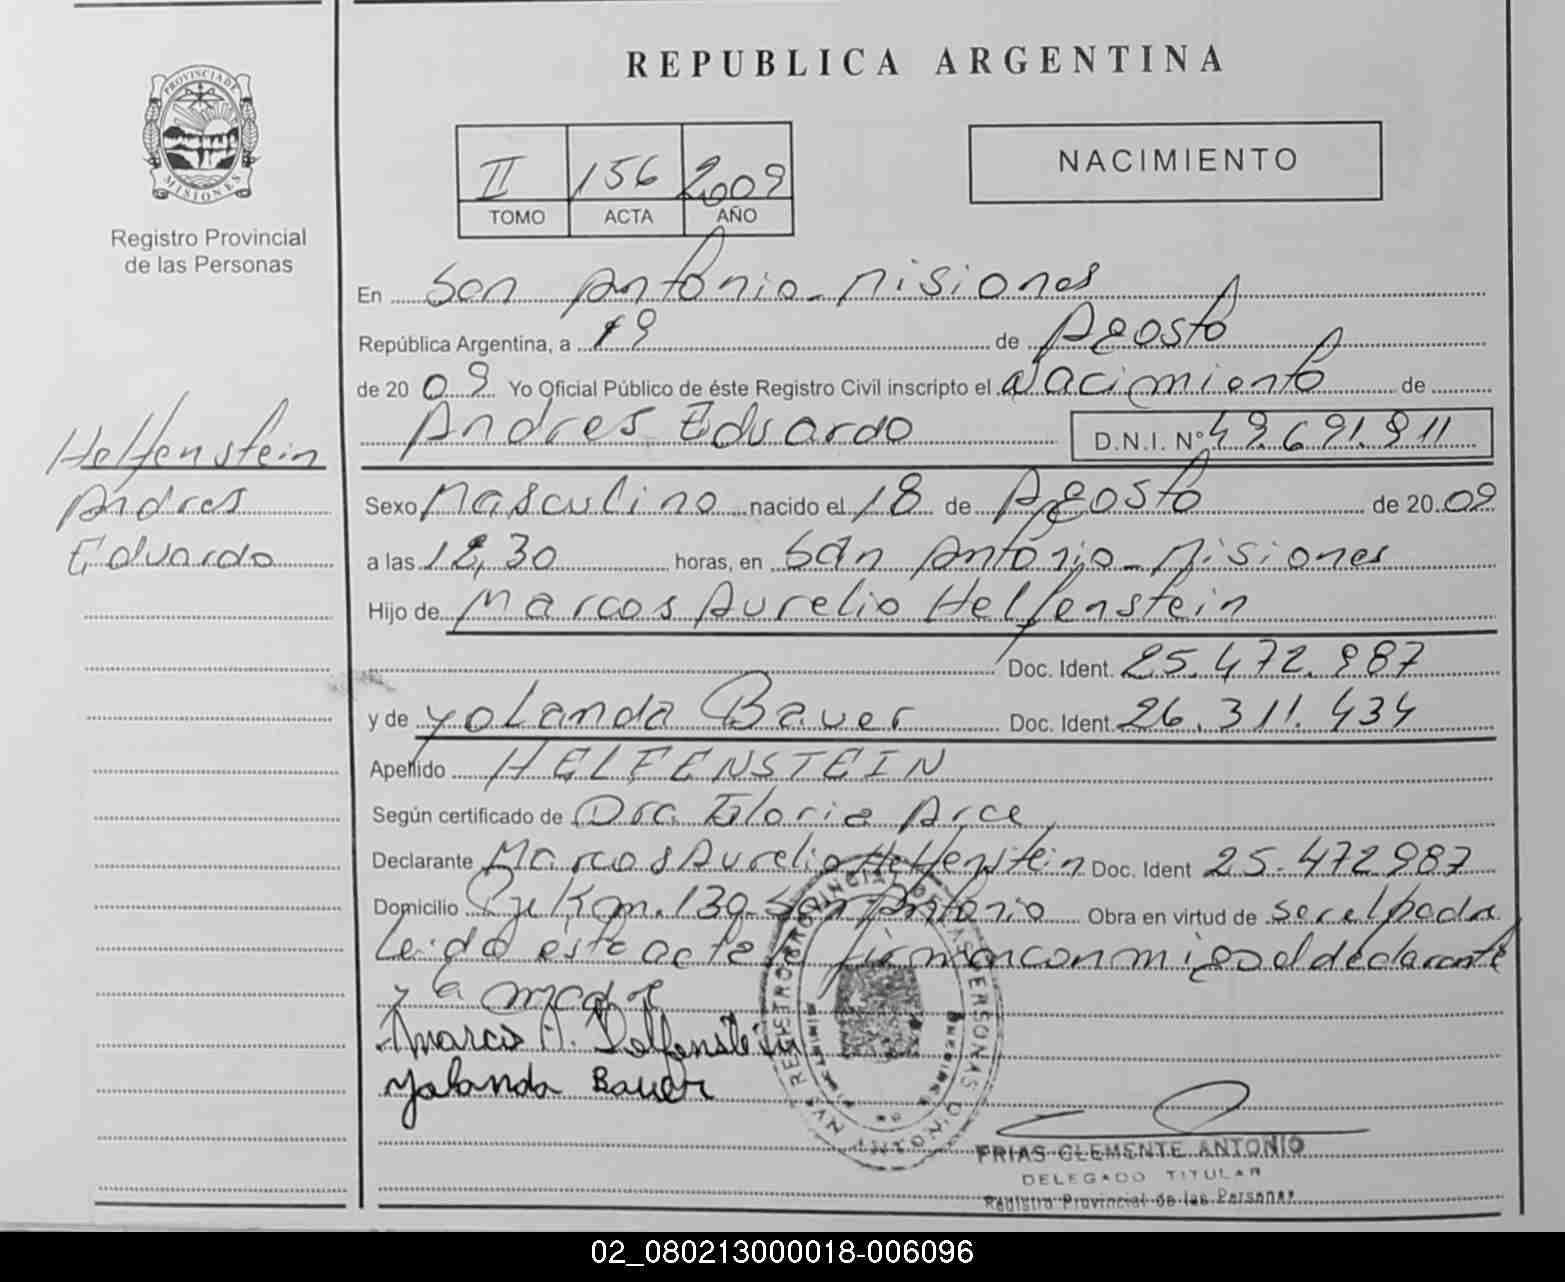 REPUBLICA ARGENTINA
PROVINCIA DE
MISIONES
Registro Provincial
de las Personas
II 156 2009
TOMO ACTA AÑO
NACIMIENTO
En San Antonio - Misiones
República Argentina, a 19 de Agosto
de 2009 Yo Oficial Público de éste Registro Civil inscripto el Nacimiento de
Andres Eduardo D.N.I. Nº 49.691.911
Helfenstein
Andres
Eduardo
Sexo Masculino nacido el 18 de Agosto de 20 09
a las 12,30 horas, en San Antonio - Misiones
Hijo de Marcos Aurelio Helfenstein
Doc. Ident. 25.472.987
y de Yolanda Bauer Doc. Ident. 26.311.434
Apellido HELFENSTEIN
Según certificado de Dra. Gloria Arce
Declarante Marcos Aurelio Helfenstein Doc. Ident 25.472.987
Domicilio Pje Km. 130 San Antonio Obra en virtud de ser el padre
Leida este acta firman conmigo el declarante
y la madre
Marcos A. Helfenstein
Yolanda Bauer
REGISTRO PROVINCIAL DE LAS PERSONAS
ANTONIO
MISIONES
FRIAS CLEMENTE ANTONIO
DELEGADO TITULAR
Registro Provincial de las Personas
02_080213000018-006096